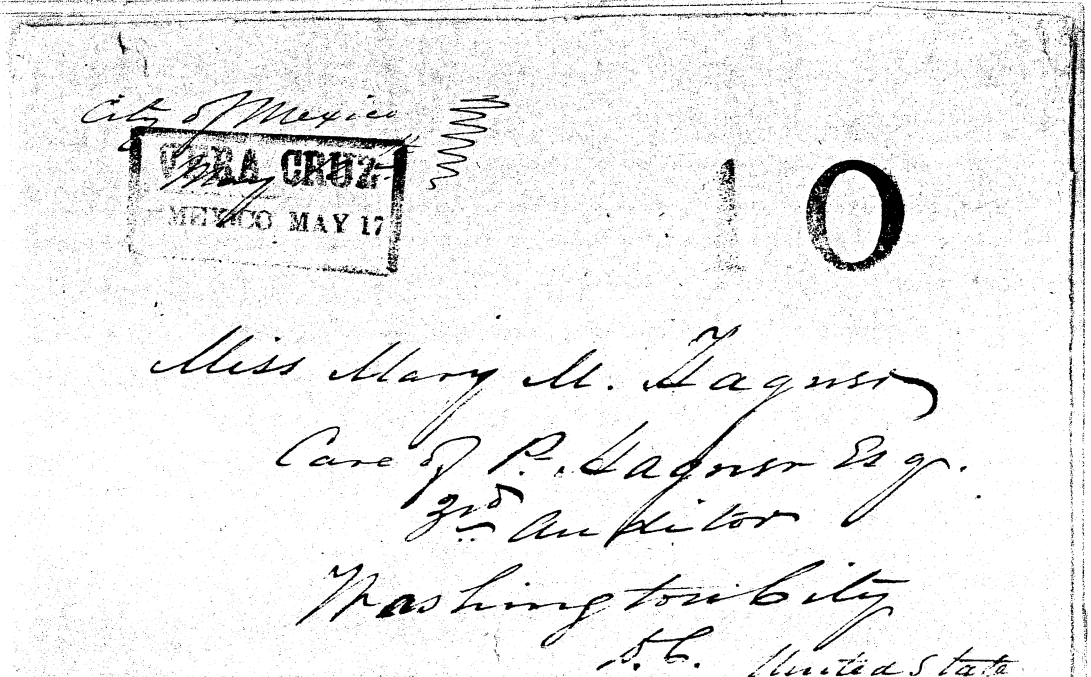 City of Mexico
May
VERA CRUZ
MEXICO MAY 17
10
Miss Mary M. Hagner
Care of P. Hagner Esq.
3rd Auditor
Washington City
D.C. United State